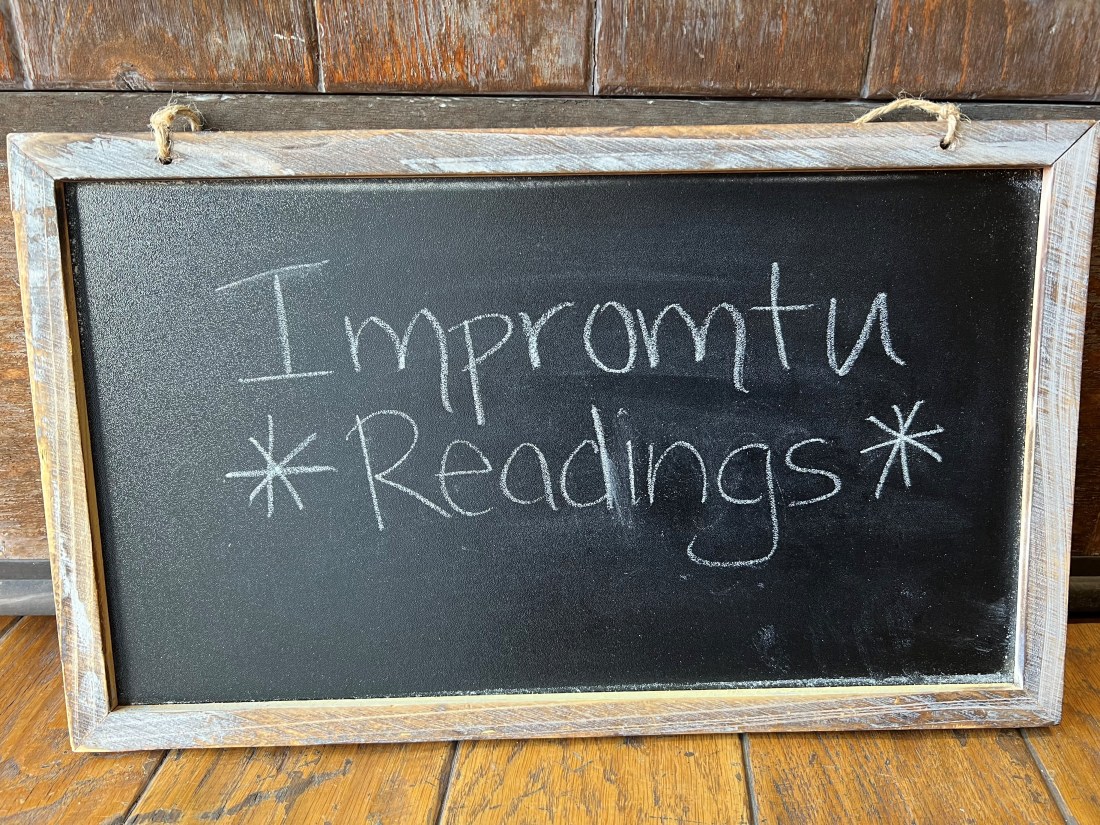 Impromtu
*Readings*